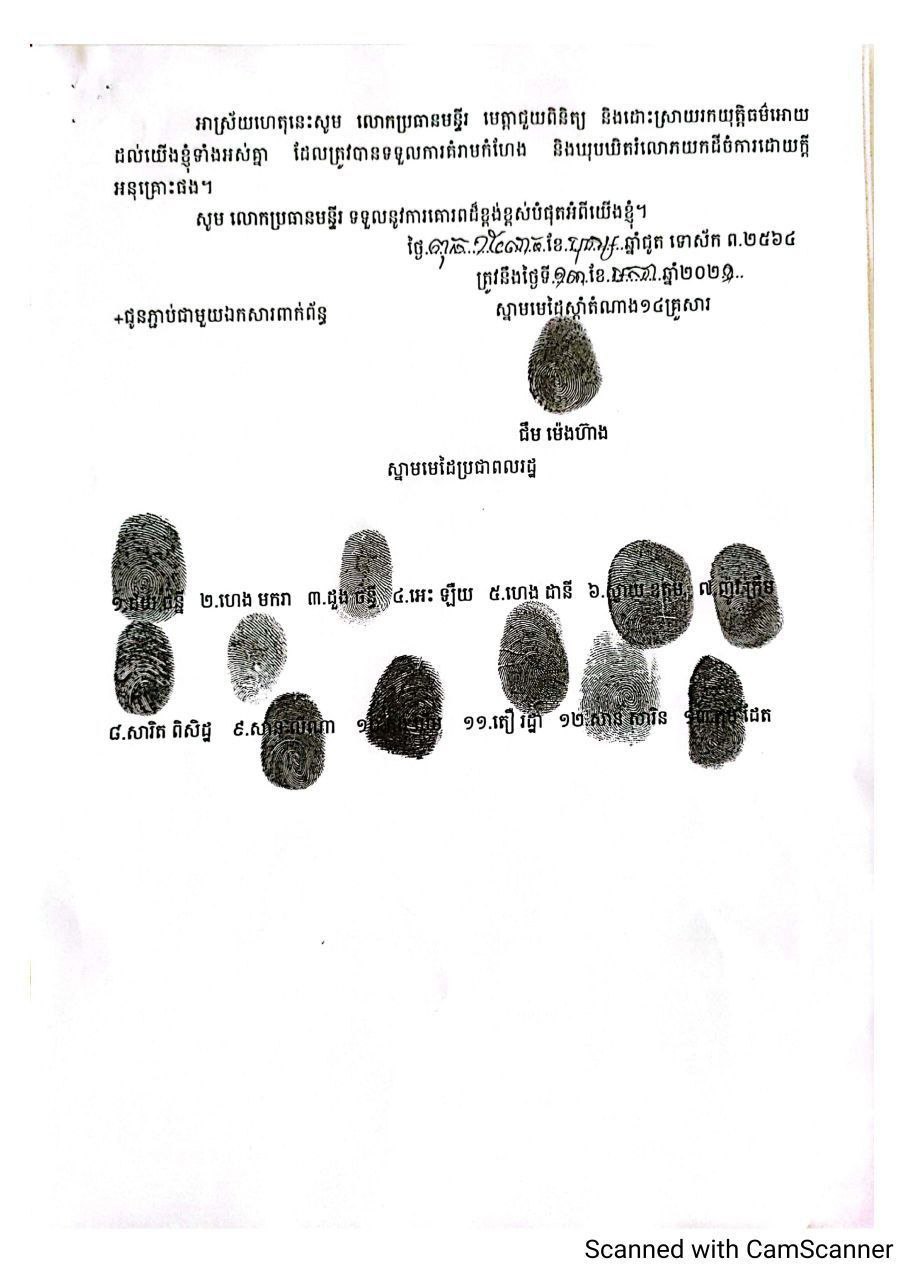 អាស្រ័យហេតុនេះសូម លោកប្រធានមន្ទីរ មេត្តាជួយពិនិត្យ និងដោះស្រាយរកយុត្តិធម៌អោយ
ដល់យើងខ្ញុំទាំងអស់គ្នា ដែលត្រូវបានទទួលការគំរាមកំហែង និងឃុបឃិតរំលោភយកដីចំការដោយក្តី
អនុគ្រោះផង។
សូម លោកប្រធានមន្ទីរ ទទួលនូវការគោរពដ៏ខ្ពង់ខ្ពស់បំផុតអំពីយើងខ្ញុំ។
ថ្ងៃ ខែ ឆ្នាំជូត ទោស័ក ព.២៥៦៤
ត្រូវនឹងថ្ងៃទី.១៣.ខែ.មករា.ឆ្នាំ២០២១..
+ជូនភ្ជាប់ជាមួយឯកសារពាក់ព័ន្ធ
ស្នាមមេដៃស្តាំតំណាង១៤គ្រួសារ
ជឹម ម៉េងហ៊ាង
ស្នាមមេដៃប្រជាពលរដ្ឋ
២.ហេង មករា ៣.ដួង ចន្ធី ៤.អេះ ឡឺយ ៥.ហេង ដានី ៦.ស្វាយ ឧត្តម ៧.
៨.សារិត ពិសិដ្ឋ ៩.សាន ១១.តឿ រដ្ឋា ១២.សាន សារិន ដែត
Scanned with CamScanner